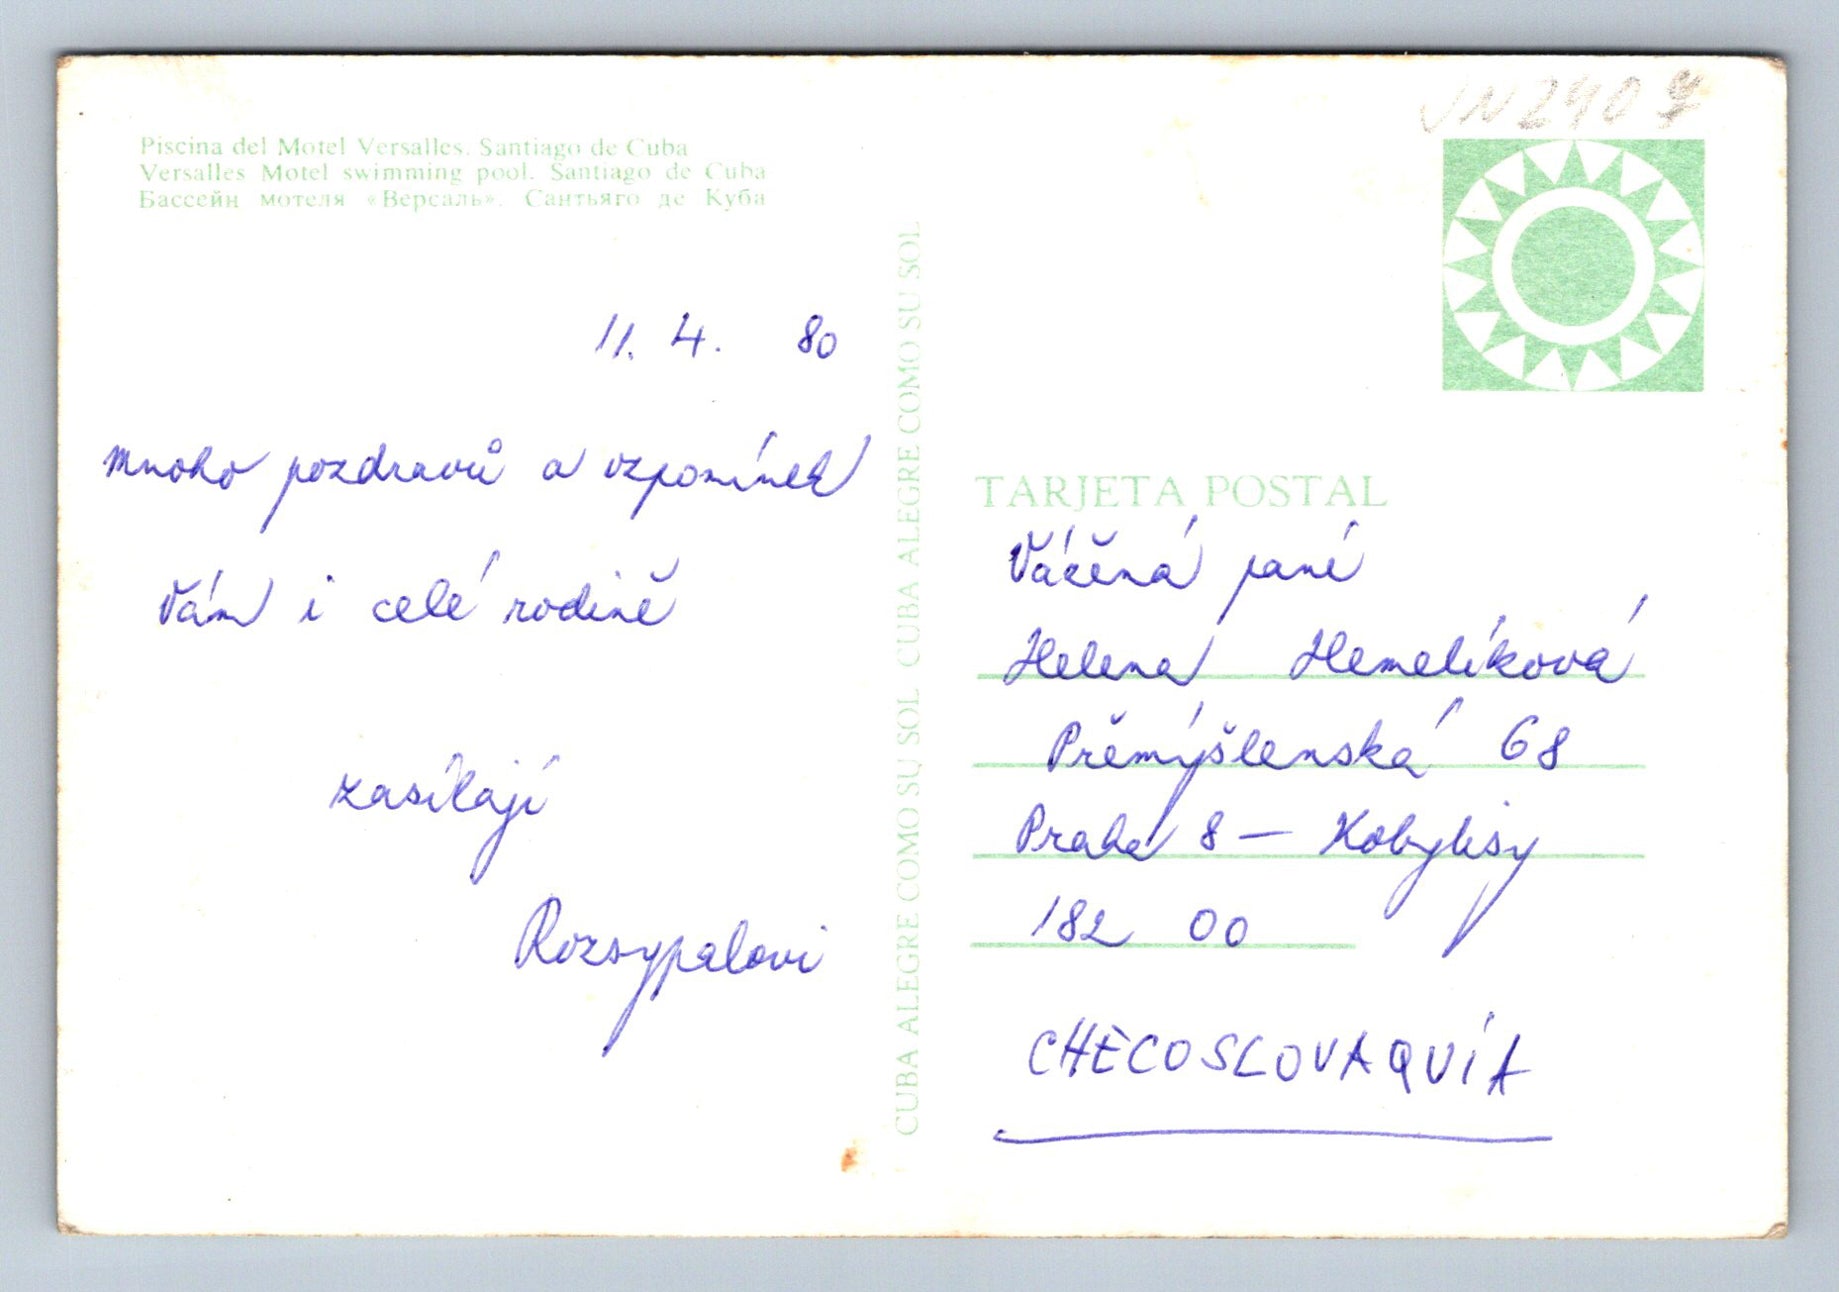 Piscina del Motel Versalles. Santiago de Cuba
Versalles Motel swimming pool. Santiago de Cuba
Бассейн мотеля «Версаль». Сантьяго де Куба
11. 4. 80
mnoho pozdravů a vzpomínek
Vám i celé rodině
zasílají
Rozsypalovi
CUBA ALEGRE COMO SU SOL CUBA ALEGRE COMO SU SOL
TARJETA POSTAL
Vážená paní
Helena Hemelíková
Přemýšlenská 68
Praha 8 – Kobylisy
182 00
CHECOSLOVAQUÍA